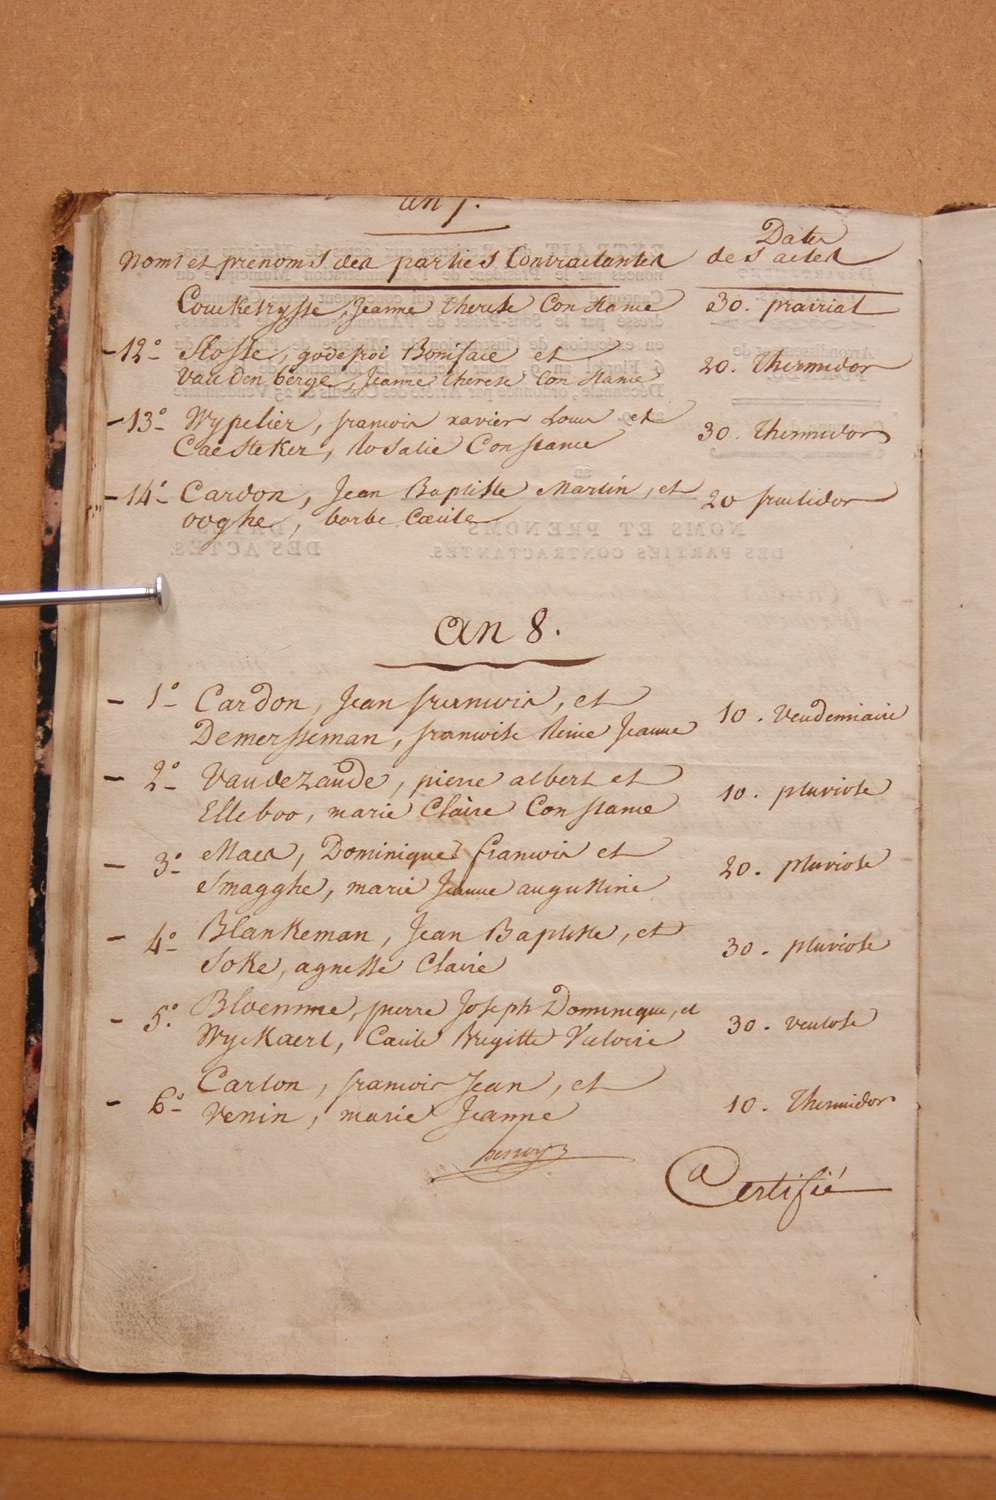 an 7.
Noms et prenoms des parties Contractantes
Dates
des actes
Couketrysse, Jeanne therese Constance 30. prairial
- 12° Stosse, godefroi Boniface et
Vanden berge, Jeanne therese Constance 20. Thermidor
- 13° Wypelier, francois xavier Louis et
Caesteker, Rosalie Constance 30. Thermidor
- 14° Cardon, Jean Baptiste Martin, et
ooghe, barbe Cecile 20 fructidor
an 8.
- 1° Cardon, Jean francois, et
Demersseman, francoise Reine Jeanne 10. Vendemiaire
- 2° Vandezande, pierre albert et
Elleboo, marie Claire Constance 10. pluviose
- 3° Maes, Dominique francois et
Smagghe, marie Jeanne augustine 20. pluviose
- 4° Blankeman, Jean Baptiste, et
Soke, agnesse Claire 30. pluviose
- 5° Bloemme, pierre Joseph Dominique, et
Wyckaert, Cecile Brigitte Victoire 30. ventose
- 6° Carton, francois Jean, et
Venin, marie Jeanne 10. Thermidor
Certifié